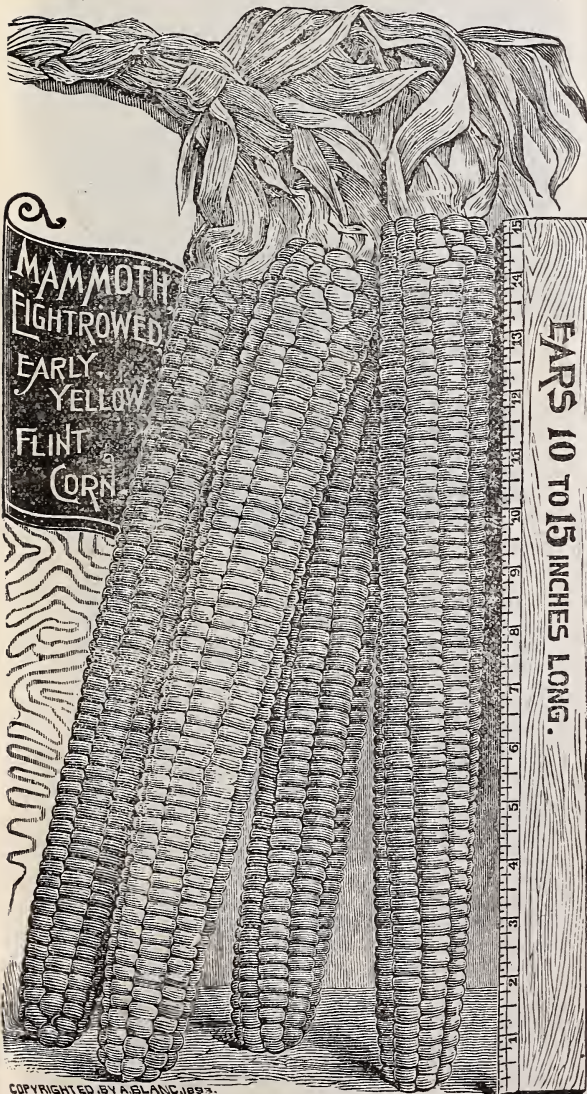 MAMMOTH
EIGHTROWED,
EARLY,
YELLOW
FLINT
CORN.
EARS 10 TO 15 INCHES LONG.
15
14
13
12
11
10
9
8
7
6
5
4
3
2
1
COPYRIGHTED BY A.BLANC.1893.